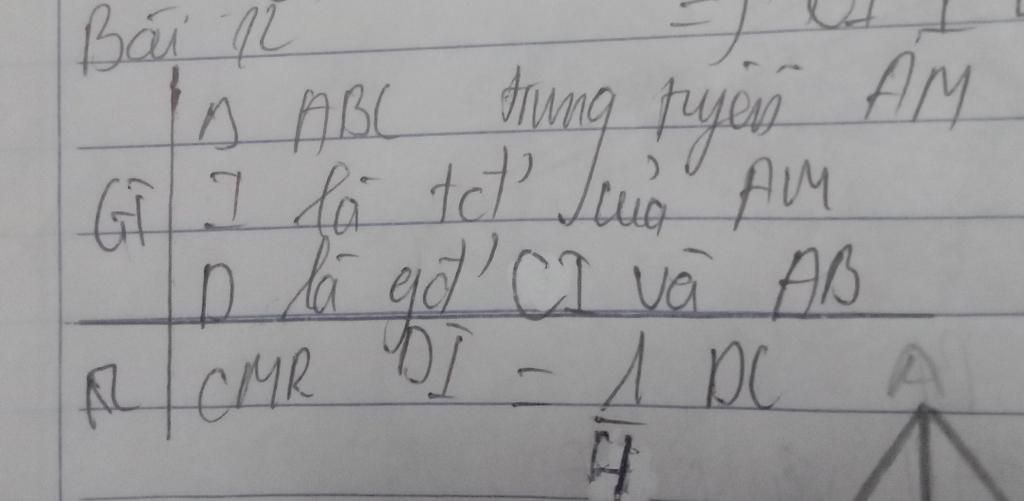 Bài 12
Δ ABC trung tuyến AM
GT I là tđ' của AM
D là gđ' CI và AB
KL CMR DI = 1/4 DC
A